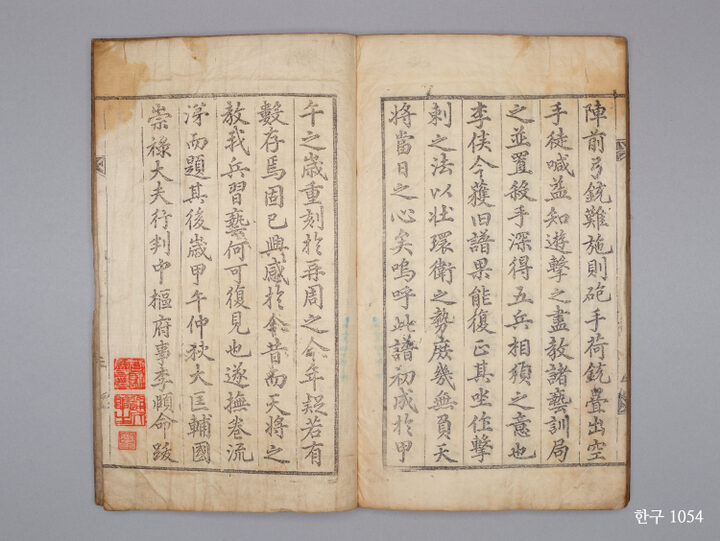 陣前弓銃難施則砲手荷銃疊出空
手徒喊益知遊擊之盡敎諸藝訓局
之並置殺手深得五兵相須之意也
李侯今獲旧譜果能復正其坐作擊
刺之法以壯環衛之勢庶幾無負天
將當日之心矣嗚呼此譜初成於甲
午之歲重刻於再周之今年疑若有
數存焉固已興感於今昔而天將之
敎我兵習藝何可復見也遂撫卷流
涕而題其後歲甲午仲秋大匡輔國
崇祿大夫行判中樞府事李頤命跋
한구 1054